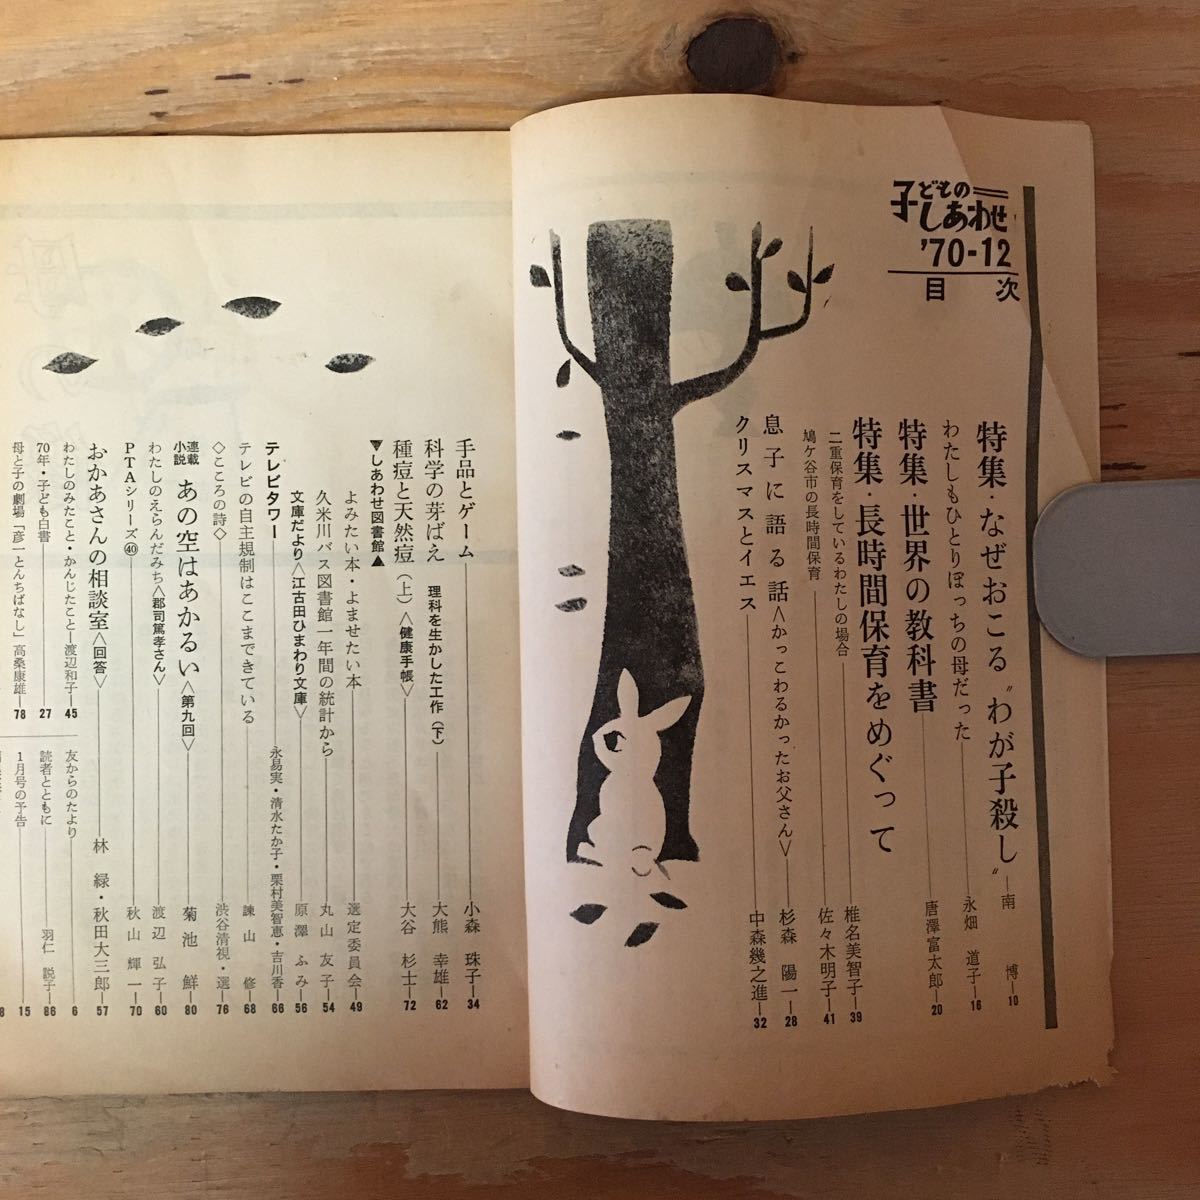 子どものしあわせ
'70-12
目次
特集・なぜおこる〝わが子殺し〟―南 博―10
わたしもひとりぼっちの母だった―永畑 道子―16
特集・世界の教科書―唐澤富太郎―20
特集・長時間保育をめぐって
二重保育をしているわたしの場合―椎名美智子―39
鳩ケ谷市の長時間保育―佐々木明子―41
息子に語る話<かっこわるかったお父さん>―杉森 陽一―28
クリスマスとイエス―中森幾之進―32
手品とゲーム―小森 珠子―34
科学の芽ばえ 理科を生かした工作(下)―大熊 幸雄―62
種痘と天然痘(上)<健康手帳>―大谷 杉士―72
▼しあわせ図書館▲
よみたい本・よませたい本―選定委員会―49
久米川バス図書館一年間の統計から―丸山 友子―54
文庫だより<江古田ひまわり文庫>―原澤 ふみ―56
テレビタワー―永易実・清水たか子・栗村美智恵・吉川香―66
テレビの自主規制はここまできている―諫山 修―68
◇こころの詩◇―渋谷清視・選―76
連載小説 あの空はあかるい<第九回>―菊池 鮮―80
わたしのえらんだみち<郡司篤孝さん>―渡辺 弘子―60
PTAシリーズ㊵―秋山 輝一―70
おかあさんの相談室<回答>―林 緑・秋田大三郎―57
わたしのみたこと・かんじたこと―渡辺和子―45
70年・子ども白書―27
母と子の劇場「彦一とんちばなし」高桑康雄―78
友からのたより―6
読者とともに―羽仁 説子―86
1月号の予告―15